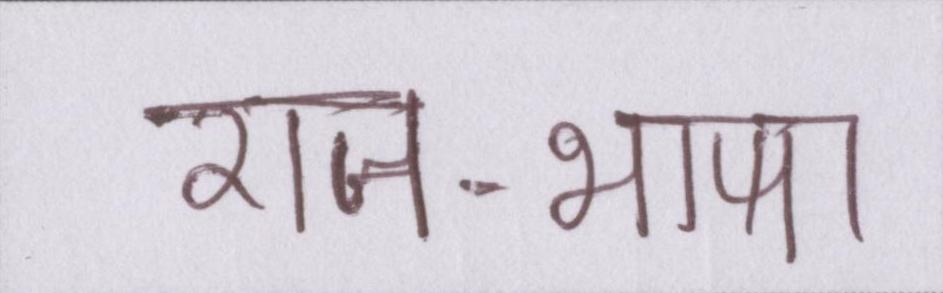 राज-भाषा